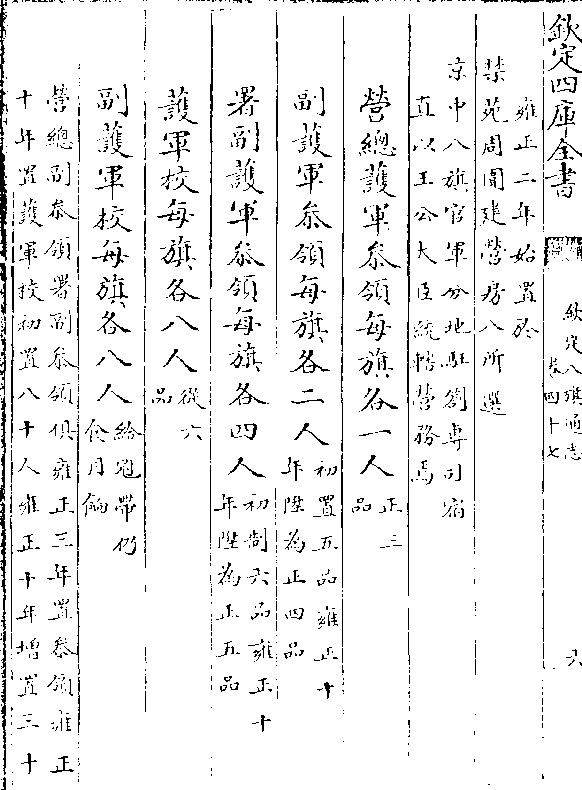 欽定四庫全書
欽定八旗通志
卷四十七
六
雍正二年始置於
禁苑周圍建營房八所選
京中八旗官軍分地駐劄專司宿
直以王公大臣統轄營務焉
營總護軍叅領每旗各一人正三
品
副護軍叅領每旗各二人初置五品雍正十
年陞為正四品
署副護軍叅領每旗各四人初制六品雍正十
年陞為正五品
護軍校每旗各八人從六
品
副護軍校每旗各八人給冠帶仍
食月餉
營總副叅領署副叅領俱雍正三年置叅領雍正
十年置護軍校初置八十人雍正十年增置三十